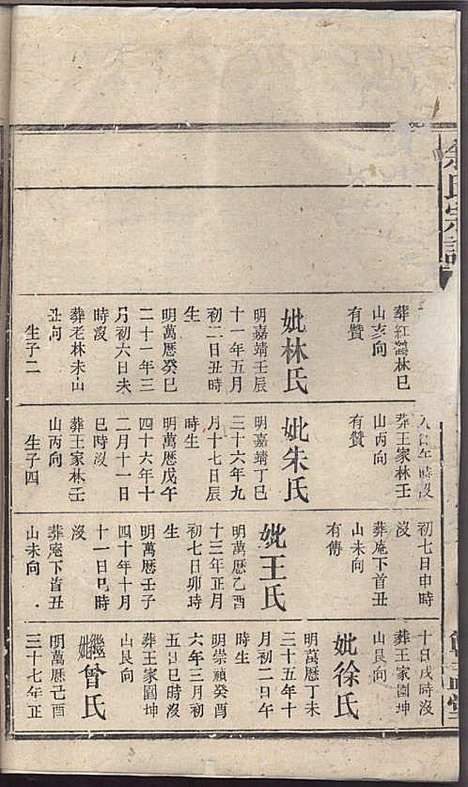 余氏宗譜
葬紅灣林巳
山亥向
有贊
妣林氏
明嘉靖壬辰
十一年五月
初二日丑時
生
明萬曆癸巳
二十一年三
月初六日未
時沒
葬老林未山
丑向
生子二
時沒
葬王家林壬
山丙向
有贊
妣朱氏
明嘉靖丁巳
三十六年九
月十七日辰
時生
明萬曆戊午
四十六年十
二月十一日
巳時沒
葬王家林壬
山丙向
生子四
初七日申時
沒
葬庵下首丑
山未向
有傳
妣王氏
明萬曆乙酉
十三年正月
初七日卯時
生
明萬曆壬子
四十年十月
十一日巳時
沒
葬庵下首丑
山未向
十日戌時沒
葬王家園坤
山艮向
妣徐氏
明萬曆丁未
三十五年十
月初二日午
時生
明崇禎癸酉
六年三月初
五日巳時沒
葬王家園坤
山艮向
繼妣曾氏
明萬曆己酉
三十七年正